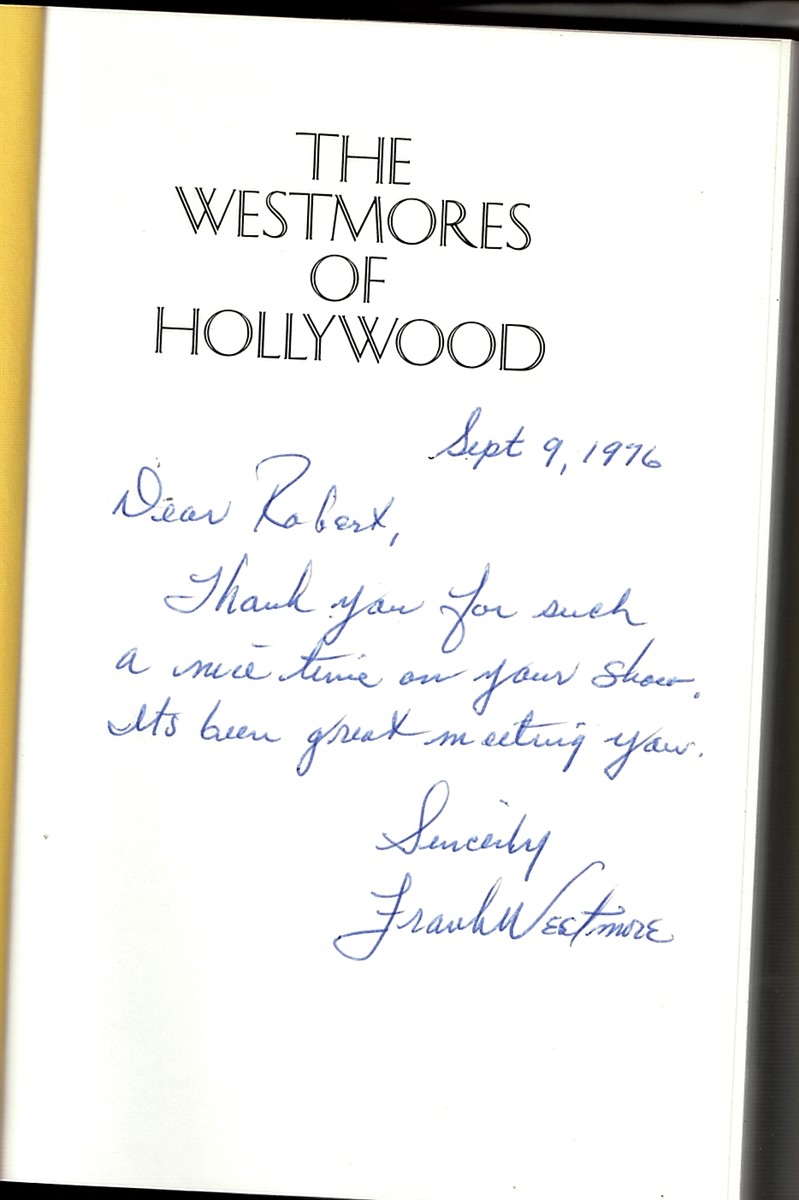 THE
WESTMORES
OF
HOLLYWOOD
Sept 9, 1976
Dear Robert,
Thank you for such
a nice time on your show.
Its been great meeting you.
Sincerly
Frank Westmore